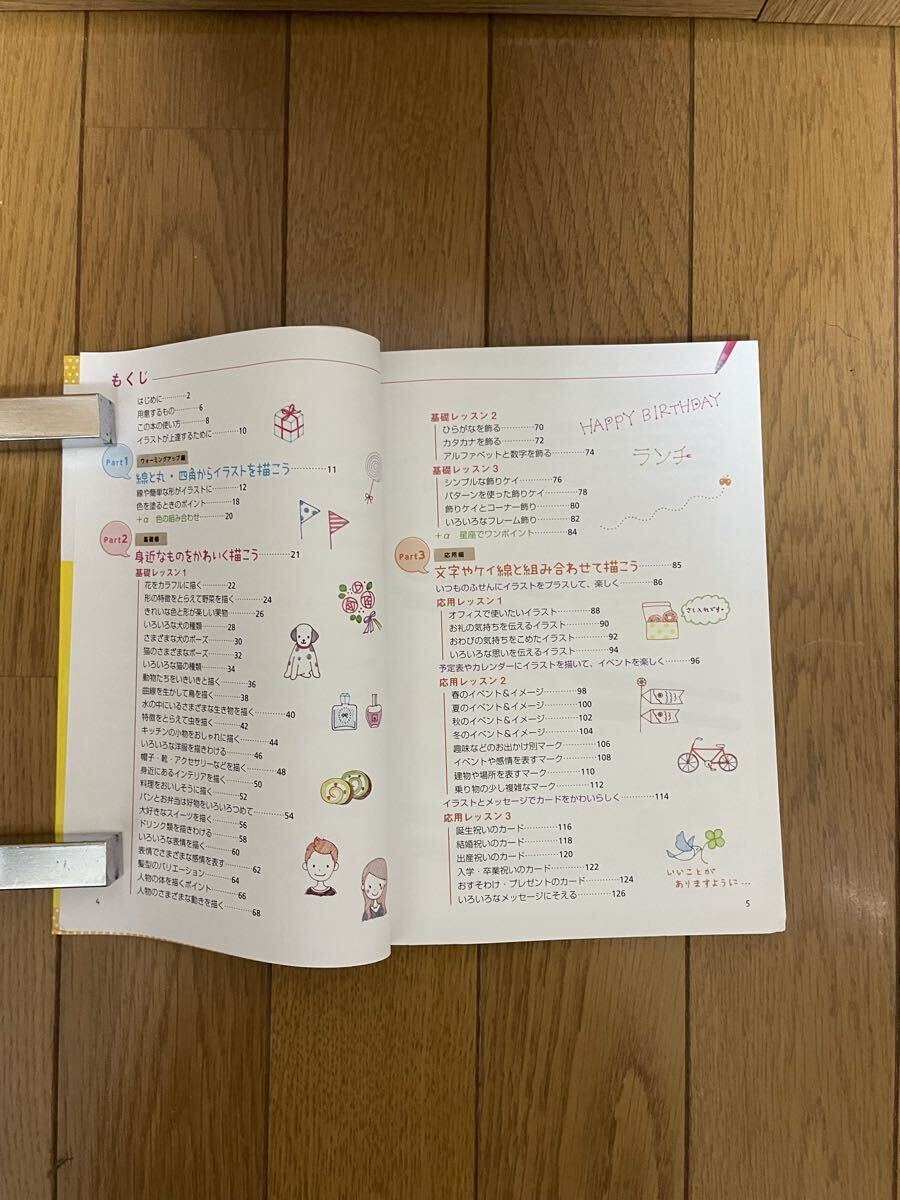 もくじ
はじめに………2
用意するもの………6
この本の使い方………8
イラストが上達するために………10
Part1 ウォーミングアップ編
線と丸・四角からイラストを描こう………11
線や簡単な形がイラストに………12
色を塗るときのポイント………18
+α 色の組み合わせ………20
Part2 基礎編
身近なものをかわいく描こう………21
基礎レッスン1
花をカラフルに描く………22
形の特徴をとらえて野菜を描く………24
きれいな色と形が楽しい果物………26
いろいろな犬の種類………28
さまざまな犬のポーズ………30
猫のさまざまなポーズ………32
いろいろな猫の種類………34
動物たちをいきいきと描く………36
曲線を生かして鳥を描く………38
水の中にいるさまざまな生き物を描く………40
特徴をとらえて虫を描く………42
キッチンの小物をおしゃれに描く………44
いろいろな洋服を描きわける………46
帽子・靴・アクセサリーなどを描く………48
身近にあるインテリアを描く………50
料理をおいしそうに描く………52
パンとお弁当は好物をいろいろつめて………54
大好きなスイーツを描く………56
ドリンク類を描きわける………58
いろいろな表情を描く………60
表情でさまざまな感情を表す………62
髪型のバリエーション………64
人物の体を描くポイント………66
人物のさまざまな動きを描く………68
4
基礎レッスン2
ひらがなを飾る………70
カタカナを飾る………72
アルファベットと数字を飾る………74
基礎レッスン3
シンプルな飾りケイ………76
パターンを使った飾りケイ………78
飾りケイとコーナー飾り………80
いろいろなフレーム飾り………82
+α 星座でワンポイント………84
HAPPY BIRTHDAY
ランチ
Part3 応用編
文字やケイ線と組み合わせて描こう………85
いつものふせんにイラストをプラスして、楽しく………86
応用レッスン1
オフィスで使いたいイラスト………88
お礼の気持ちを伝えるイラスト………90
おわびの気持ちをこめたイラスト………92
いろいろな思いを伝えるイラスト………94
さし入れです。
予定表やカレンダーにイラストを描いて、イベントを楽しく………96
応用レッスン2
春のイベント&イメージ………98
夏のイベント&イメージ………100
秋のイベント&イメージ………102
冬のイベント&イメージ………104
趣味などのお出かけ別マーク………106
イベントや感情を表すマーク………108
建物や場所を表すマーク………110
乗り物の少し複雑なマーク………112
イラストとメッセージでカードをかわいらしく………114
応用レッスン3
誕生祝いのカード………116
結婚祝いのカード………118
出産祝いのカード………120
入学・卒業祝いのカード………122
おすそわけ・プレゼントのカード………124
いろいろなメッセージにそえる………126
いいことが
ありますように…
5